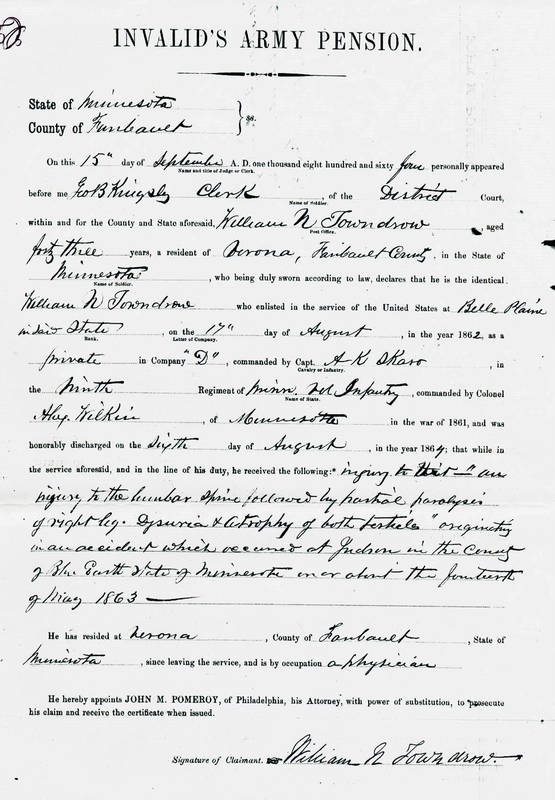 INVALID'S ARMY PENSION.
State of Minnesota
County of Faribault } ss.
On this 15" day of September A. D. one thousand eight hundred and sixty four personally appeared
Name and title of Judge or Clerk.
before me Geo B Kingsley Clerk , of the District Court,
Name of Soldier.
within and for the County and State aforesaid, William N Towndrow , aged
Post Office.
forty three years, a resident of Verona, Faribault County , in the State of
Minnesota , who being duly sworn according to law, declares that he is the identical
Name of Soldier.
William N Towndrow who enlisted in the service of the United States at Belle Plaine
in said State , on the 17" day of August , in the year 1862, as a
Rank. Letter of Company.
private in Company "D", commanded by Capt. A K Skaro , in
Cavalry or Infantry.
the Ninth Regiment of Minn. Vol Infantry, commanded by Colonel
Name of State.
Alex. Wilkin , of Minnesota in the war of 1861, and was
honorably discharged on the Sixth day of August , in the year 1864; that while in
the service aforesaid, and in the line of his duty, he received the following:* injury to wit - " an
injury to the lumbar spine followed by partial paralysis
of right leg. Dysuria & Atrophy of both testicles" originating
in an accident which occured at Judson in the County
of Blue Earth State of Minnesota on or about the fourteenth
of May 1863
He has resided at Verona , County of Faribault , State of
Minnesota , since leaving the service, and is by occupation a physician
He hereby appoints JOHN M. POMEROY, of Philadelphia, his Attorney, with power of substitution, to prosecute
his claim and receive the certificate when issued.
Signature of Claimant. William N Towndrow.